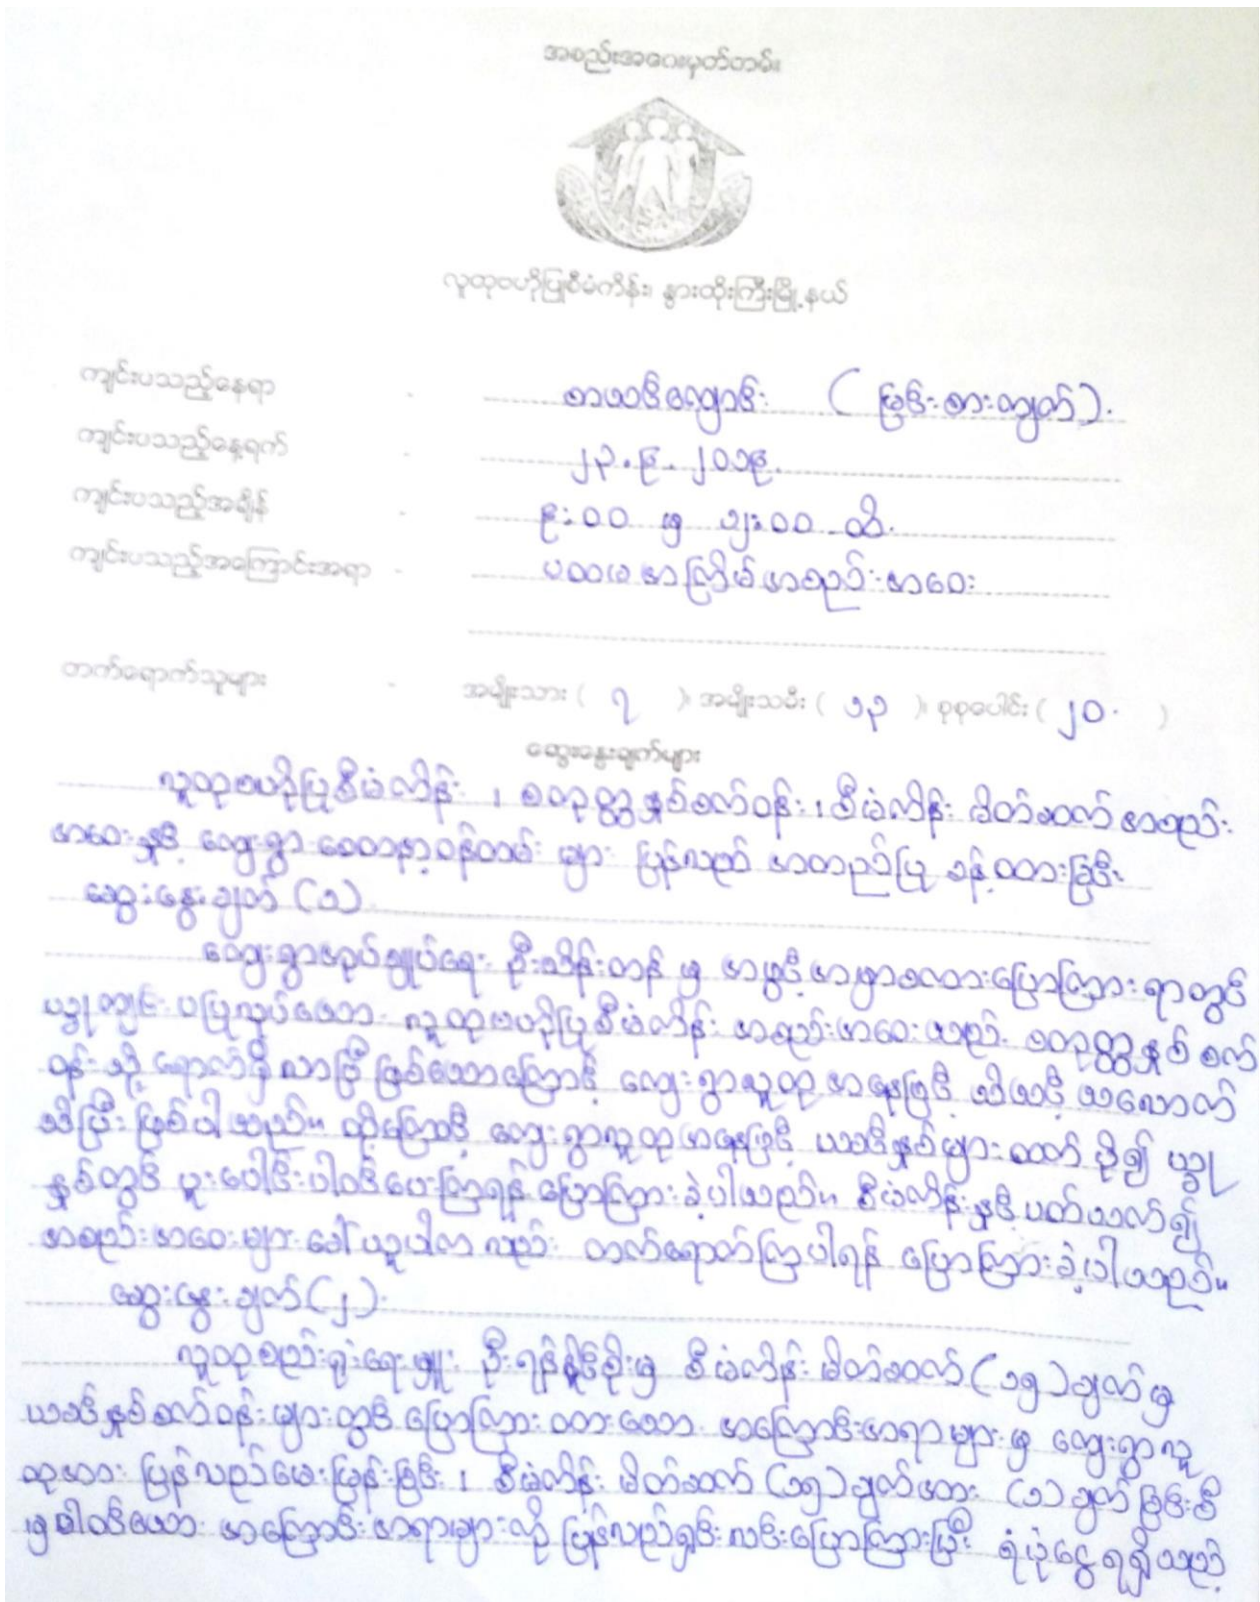 အစည်းအဝေးမှတ်တမ်း
လူထုဗဟိုပြုစီမံကိန်း၊ နွားထိုးကြီးမြို့နယ်
ကျင်းပသည့်နေရာ - စာသင်ကျောင်း (မြင်းစားကျက်)
ကျင်းပသည့်နေ့ရက် - ၂၃.၉.၂၀၁၉.
ကျင်းပသည့်အချိန် - ၉:၀၀ မှ ၁၂:၀၀ ထိ.
ကျင်းပသည့်အကြောင်းအရာ - ပထမအကြိမ်အစည်းအဝေး
တက်ရောက်သူများ - အမျိုးသား ( ၇ )၊ အမျိုးသမီး ( ၁၃ )၊ စုစုပေါင်း ( ၂၀. )
ဆွေးနွေးချက်များ
လူထုဗဟိုပြုစီမံကိန်း ၊ စတုတ္ထနှစ်စက်ဝန်း ၊ စီမံကိန်း မိတ်ဆက် အစည်း
အဝေးနှင့် ကျေးရွာ စေတနာ့ဝန်ထမ်း များ ပြန်လည် အတည်ပြု ခန့်ထားခြင်း
ဆွေးနွေးချက် (၁)
ကျေးရွာအုပ်ချုပ်ရေး ဦးသိန်းတန် မှ အဖွင့်အမှာစကားပြောကြားရာတွင်
ယခုကျင်းပပြုလုပ်သော လူထုဗဟိုပြုစီမံကိန်း အစည်းအဝေးသည် စတုတ္ထနှစ် စက်
ဝန်းသို့ ရောက်ရှိလာပြီ ဖြစ်သောကြောင့် ကျေးရွာလူထု အနေဖြင့် သိသင့်သလောက်
သိပြီး ဖြစ်ပါသည်။ ထို့ကြောင့် ကျေးရွာလူထုအနေဖြင့် ယခင်နှစ်များထက် ပို၍ ယခု
နှစ်တွင် ပူးပေါင်းပါဝင်ပေးကြရန် ပြောကြားခဲ့ပါသည်။ စီမံကိန်းနှင့်ပတ်သက်၍
အစည်းအဝေးများ ခေါ်ယူပါက လည်း တက်ရောက်ကြပါရန် ပြောကြားခဲ့ပါသည်။
ဆွေးနွေးချက် (၂)
လူထုစည်းရုံးရေးမှူး ဦးရန်နိုင်စိုးမှ စီမံကိန်း မိတ်ဆက် (၁၅) ချက်မှ
ယခင်နှစ်စက်ဝန်းများတွင် ပြောကြားထားသော အကြောင်းအရာများမှ ကျေးရွာလူ
ထုအား ပြန်လည်မေးမြန်းခြင်း ၊ စီမံကိန်း မိတ်ဆက် (၁၅) ချက်အား (၁) ချက်ခြင်းစီ
မှ ပါဝင်သော အကြောင်းအရာများကို ပြန်လည်ရှင်းလင်းပြောကြားပြီး ရံပုံငွေရရှိသည့်